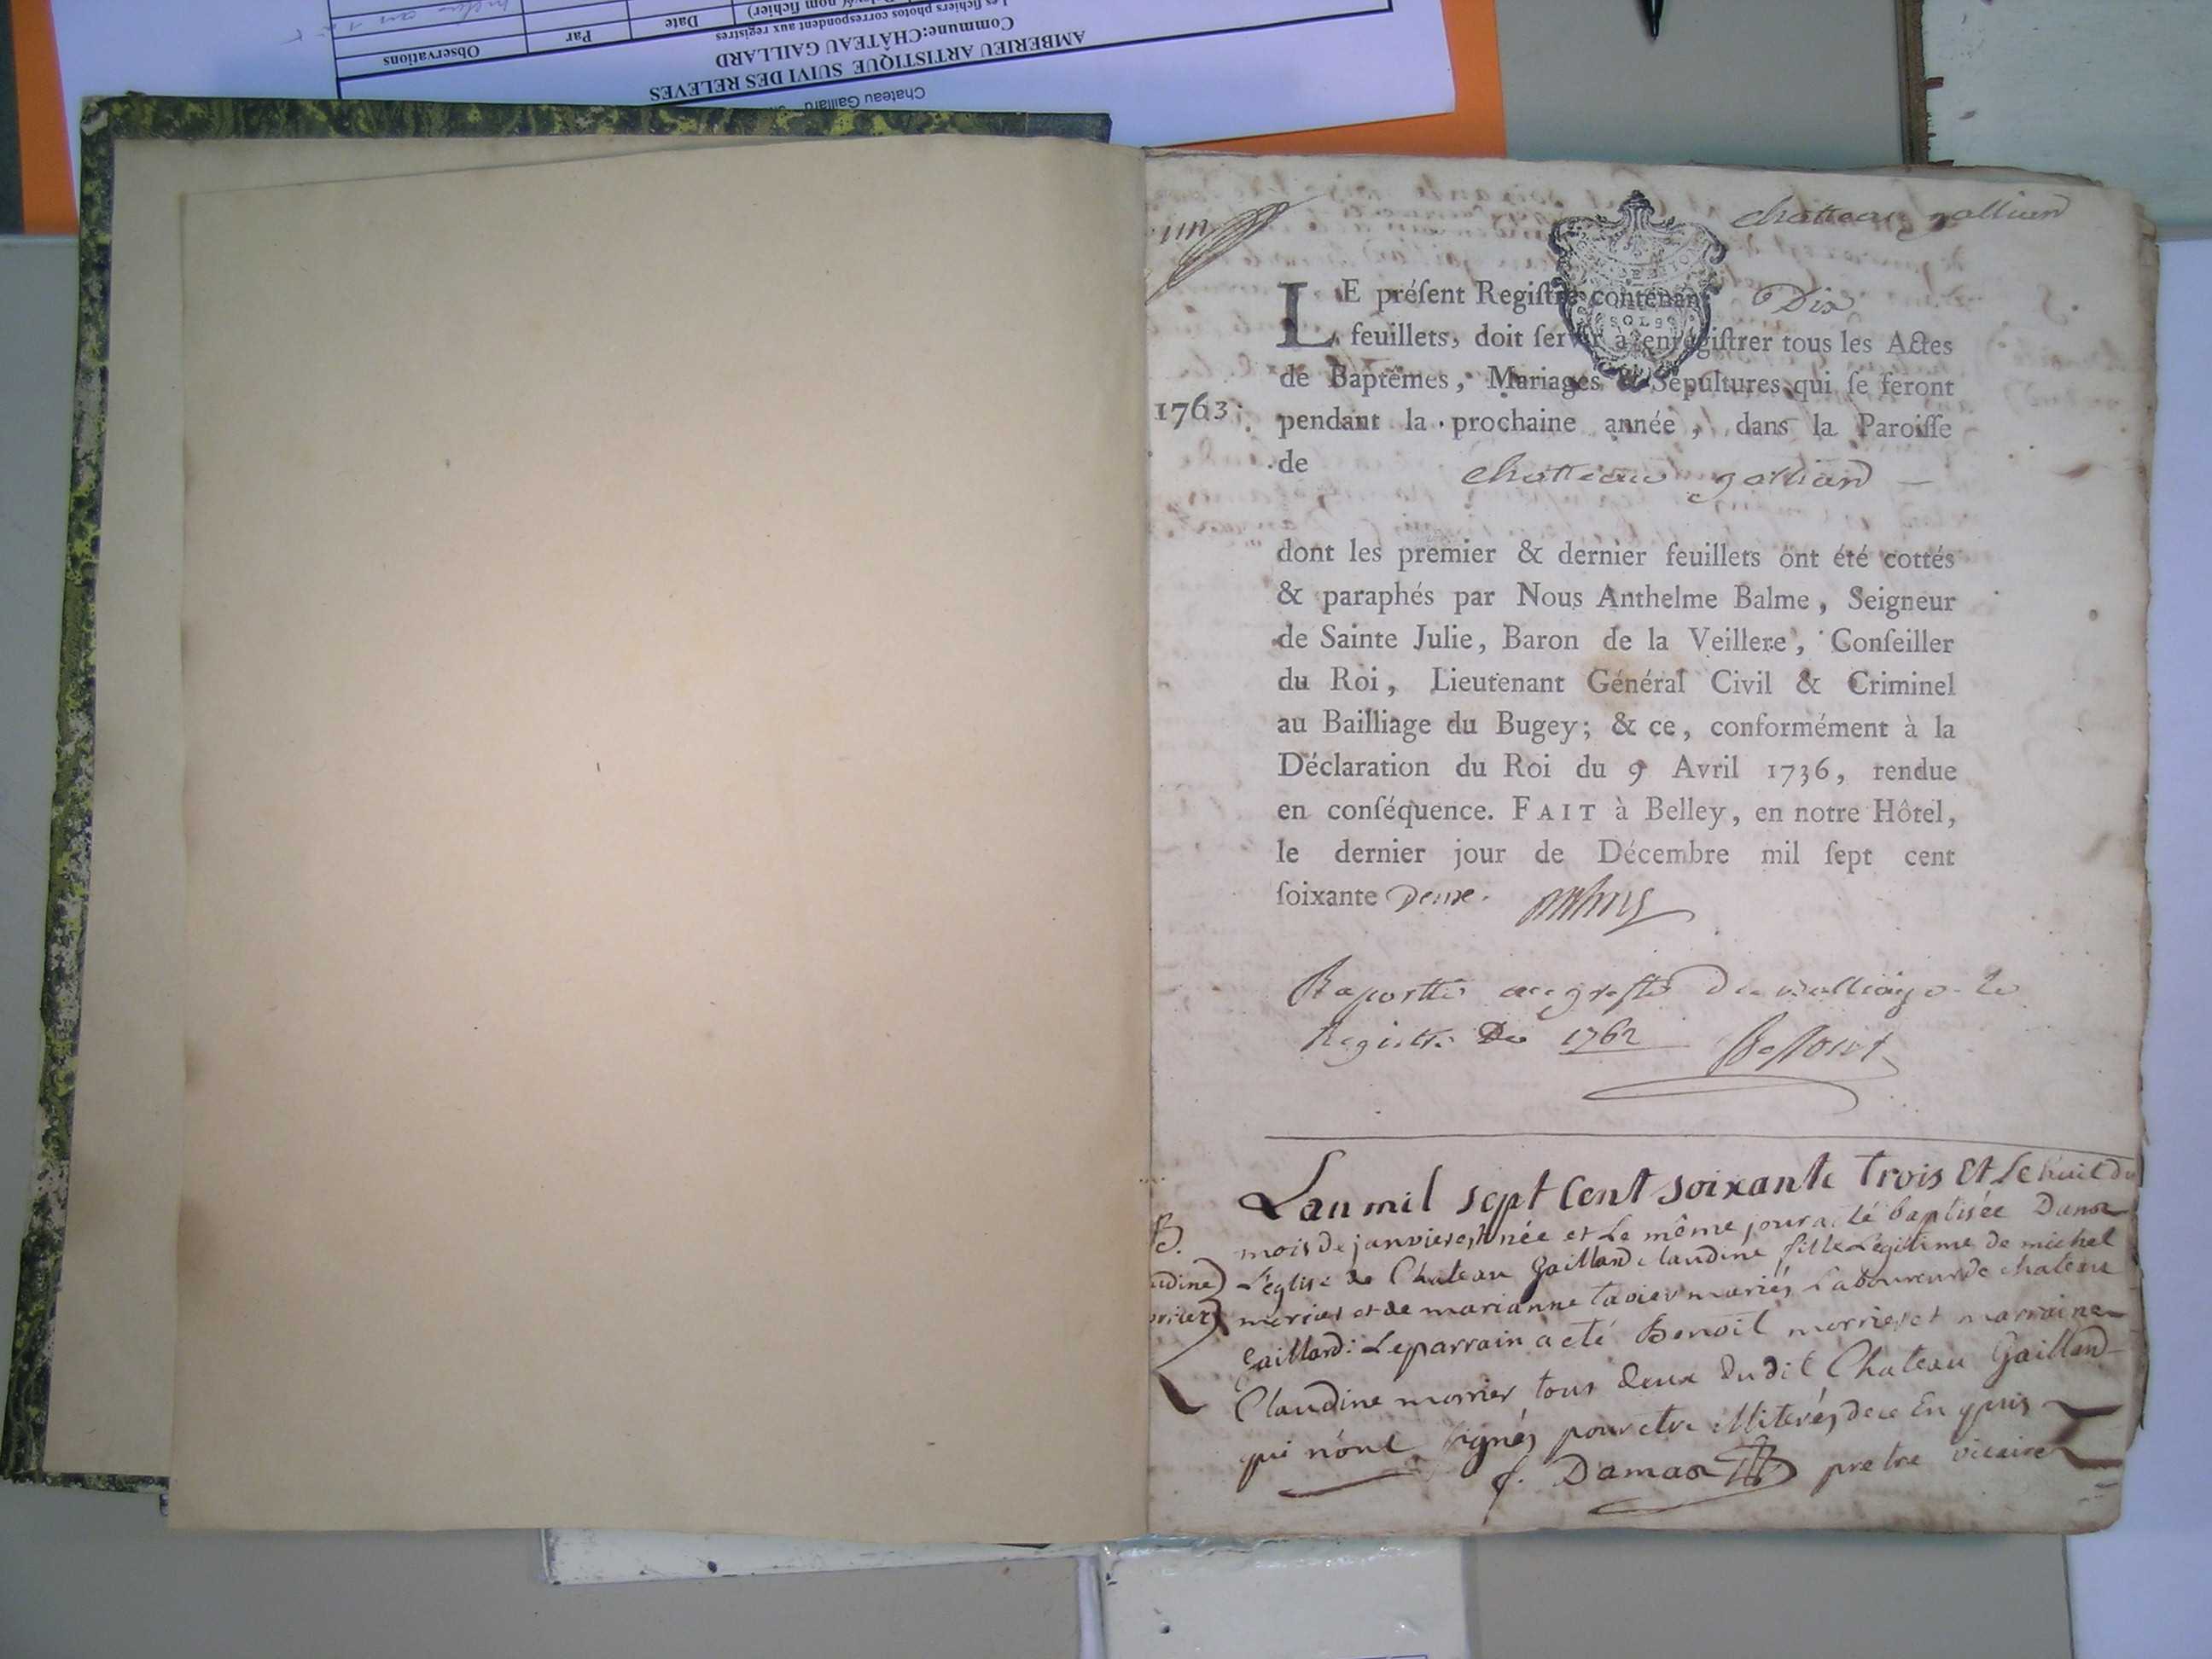 Chateau Gaillard
AMBERIEU ARTISTIQUE SUIVI DES RELEVES
Commune:CHÂTEAU GAILLARD
Les fichiers photos correspondent aux registres
nom fichier)
Date
Par
Observations
chatteau gallian
LE préſent Regiſtre contenant Dix
feuillets, doit ſervir à enrégiſtrer tous les Actes
de Baptêmes, Mariages & Sépultures qui ſe feront
1763. pendant la prochaine année, dans la Paroiſſe
de chatteau gallian
dont les premier & dernier feuillets ont été cottés
& paraphés par Nous Anthelme Balme, Seigneur
de Sainte Julie, Baron de la Veillere, Conſeiller
du Roi, Lieutenant Général Civil & Criminel
au Bailliage du Bugey; & ce, conformément à la
Déclaration du Roi du 9 Avril 1736, rendue
en conſéquence. FAIT à Belley, en notre Hôtel,
le dernier jour de Décembre mil ſept cent
ſoixante Deux.
Raportté au greffe Du balliage le
Registre De 1762
Lan mil sept Cent soixante trois Et le huit du
B. mois de janvier est née et Le même jour a eté baptisée Dans
L'église de Chateau Gaillard claudine fille Légitime de michel
morrier et de marianne tavier mariés Laboureur de chateau
Gaillard: Le parrain a eté Benoit morrier et marraine
Claudine morrier tous deux Dudit Chateau Gaillard
qui n'ont signés pour etre illiterés de ce Enquris
f. Damas pretre vicaire